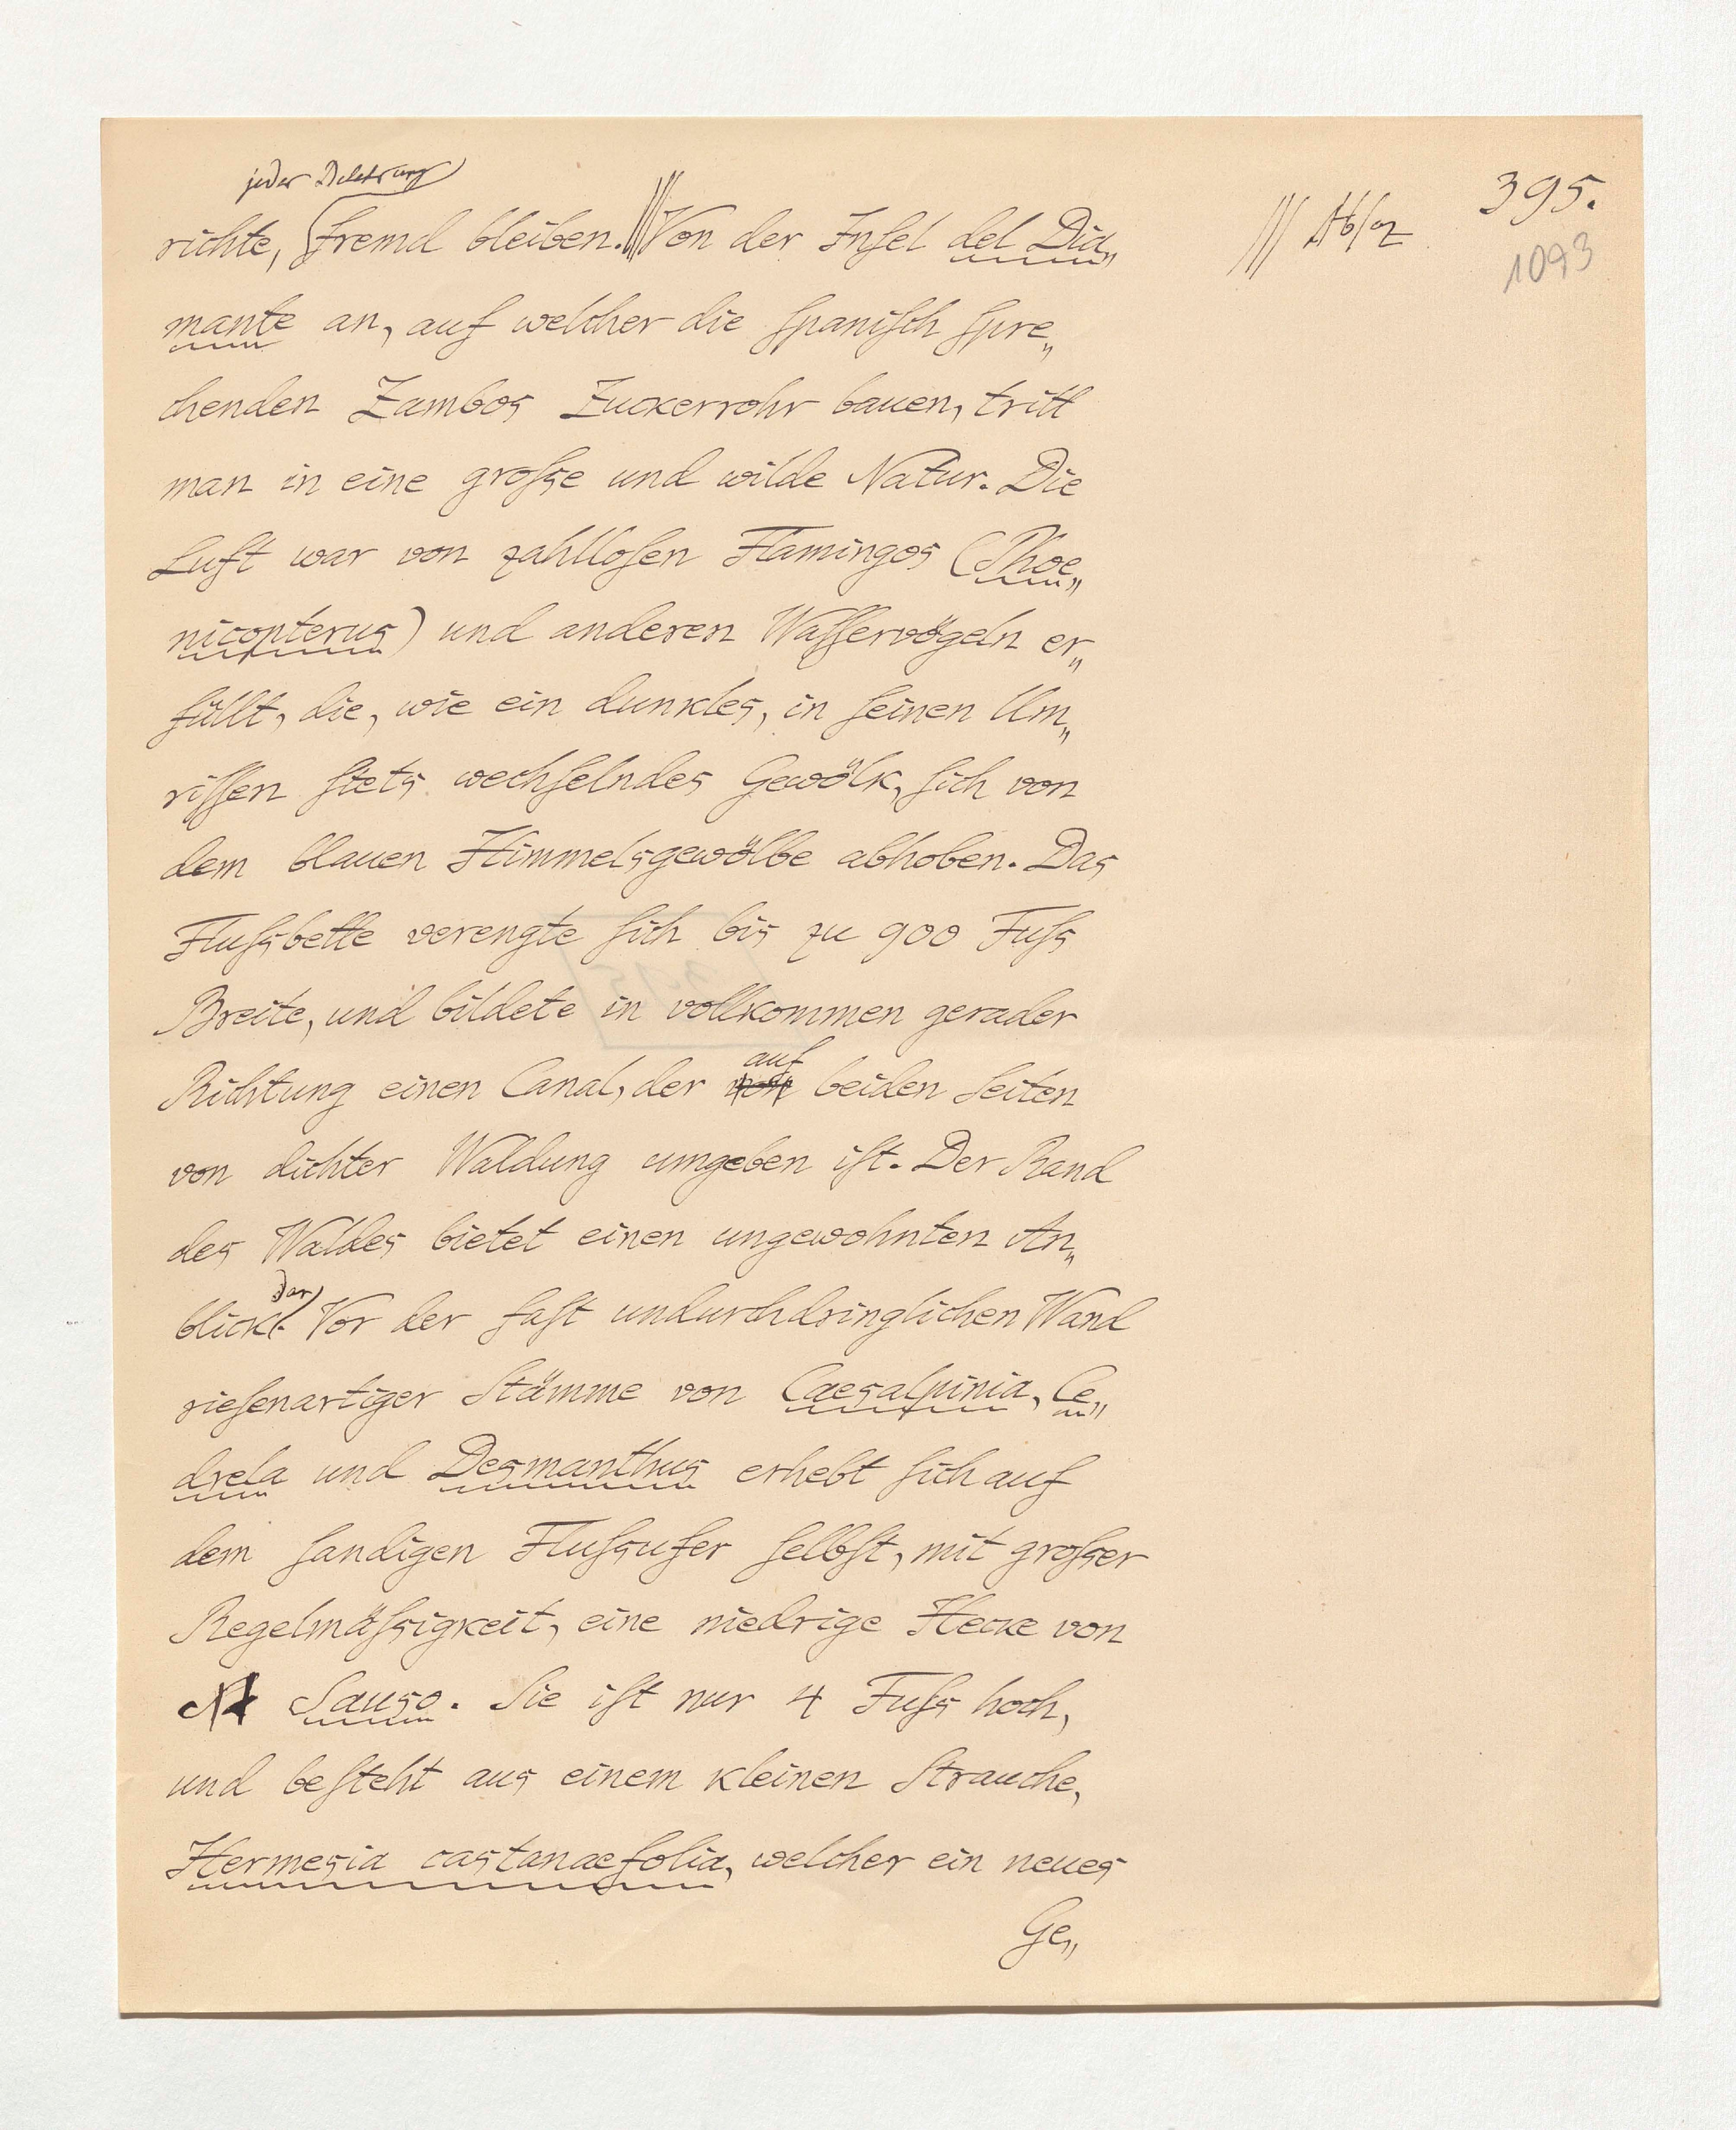 395.
1093
/// Absaz
jeder Belehrung
richte, fremd bleiben. /// Von der Insel del Dia„
mante an, auf welcher die spanisch spre„
chenden Zambos Zuckerrohr bauen, tritt
man in eine grosse und wilde Natur. Die
Luft war von zahllosen Flamingos (Phoe„
nicopterus) und anderen Wasservögeln er„
füllt, die, wie ein dunkles, in seinen Um„
rissen stets wechselndes Gewölk, sich von
dem blauen Himmelsgewölbe abhoben. Das
Flussbette verengte sich bis zu 900 Fuss
Breite, und bildete in vollkommen gerader
auf
Richtung einen Canal, der von beiden Seiten
von dichter Waldung umgeben ist. Der Rand
des Waldes bietet einen ungewohnten An„
dar
blick. Vor der fast undurchdringlichen Wand
riesenartiger Stämme von Caesalpinia, Ce„
drela und Desmanthus erhebt sich auf
dem sandigen Flussufer selbst, mit grosser
Regelmässigkeit, eine niedrige Hecke von
Sauso. Sie ist nur 4 Fuss hoch,
und besteht aus einem kleinen Strauche,
Hermesia castanaefolia, welcher ein neues
Ge„